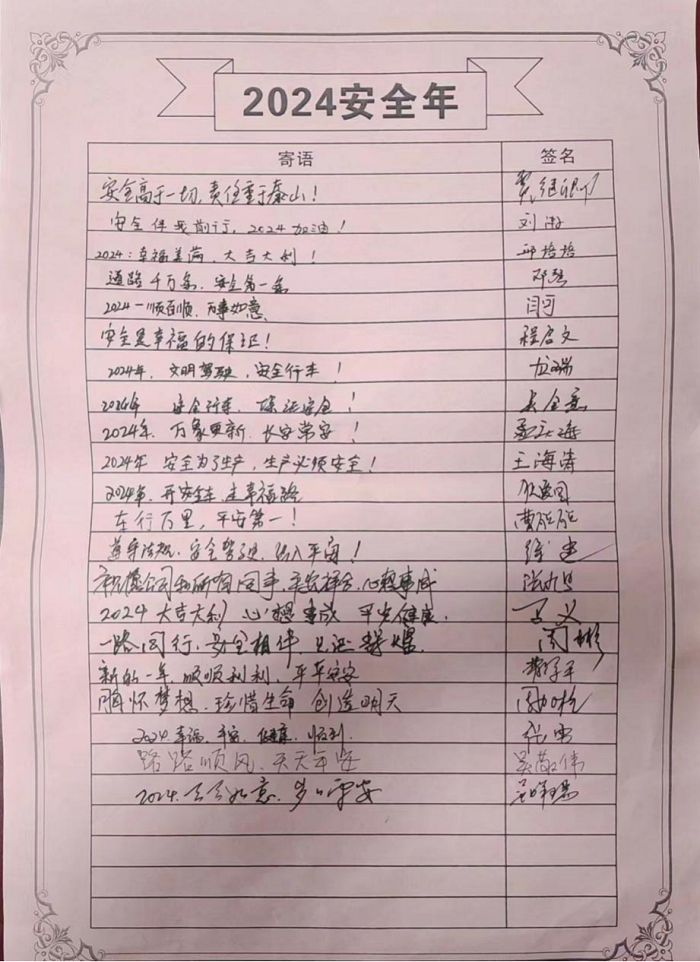 2024安全年
寄语 签名
安全高于一切,责任重于泰山!
安全伴我前行,2024加油! 刘海
2024:幸福美满、大吉大利! 邱培培
道路千万条,安全第一条 邓强
2024一顺百顺,万事如意 闫可
安全是幸福的保证! 程启文
2024年,文明驾驶,安全行车!
2024年 安全行车,保证安全!
2024年,万象更新,长安常安!
2024年 安全为了生产,生产必须安全! 王海涛
2024年,开安全车,走幸福路
车行万里,平安第一!
遵守法规,安全驾驶,
祝愿公司和所有同事,幸福祥和,心想事成
2024 大吉大利 心想事成 平安健康.
一路同行,安全相伴,见证辉煌 闵彬
新的一年,顺顺利利,平平安安
胸怀梦想,珍惜生命 创造明天
2024.幸福、平安、健康、顺利.
路路顺风,天天平安 吴敬伟
2024.天天如意、岁岁平安